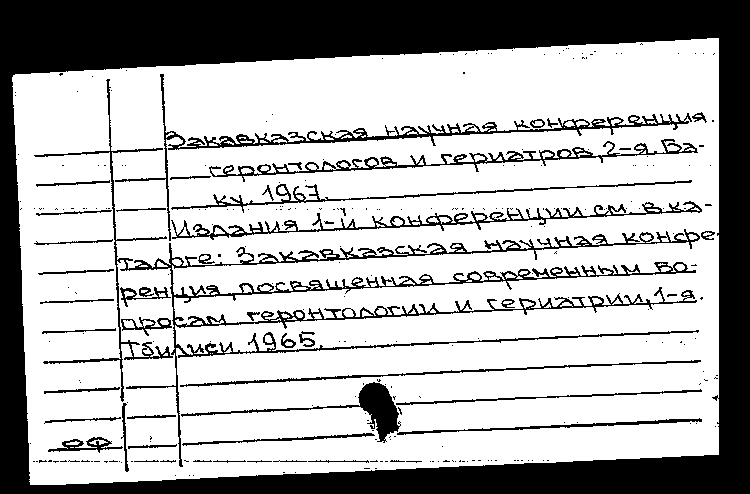 Закавказская научная конференция
геронтологов и гериатров, 2-я. Ба-
ку. 1967.
Издания 1-й конференции см. в ка-
талоге: Закавказская научная конфе-
ренция, посвященная современным во-
просам геронтологии и гериатрии, 1-я.
Тбилиси. 1965.
ОФ